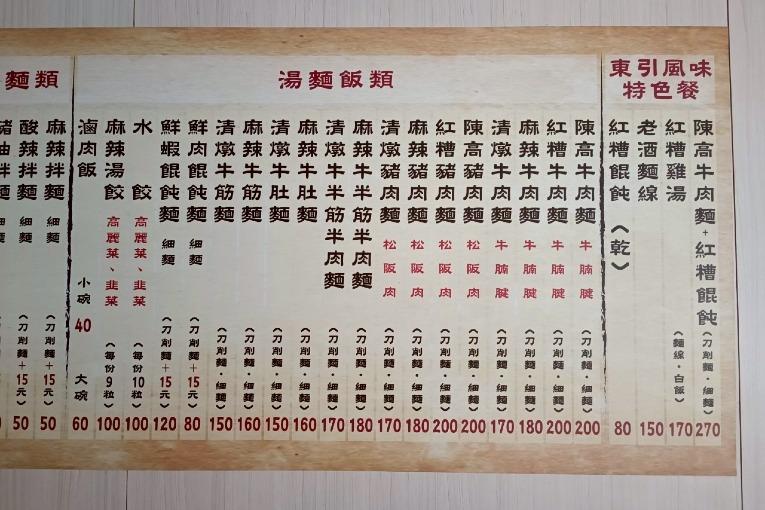 東引風味
特色餐
陳高牛肉麵+紅糟餛飩(刀削麵.細麵)270
紅糟雞湯(麵線.白飯)170
老酒麵線150
紅糟餛飩(乾)80
湯麵飯類
陳高牛肉麵 牛腩腱(刀削麵.細麵)200
紅糟牛肉麵 牛腩腱(刀削麵.細麵)200
麻辣牛肉麵 牛腩腱(刀削麵.細麵)180
清燉牛肉麵 牛腩腱(刀削麵.細麵)170
陳高豬肉麵 松阪肉(刀削麵.細麵)200
紅糟豬肉麵 松阪肉(刀削麵.細麵)200
麻辣豬肉麵 松阪肉(刀削麵.細麵)180
清燉豬肉麵 松阪肉(刀削麵.細麵)170
麻辣牛半筋半肉麵(刀削麵.細麵)180
清燉牛半筋半肉麵(刀削麵.細麵)170
麻辣牛肚麵(刀削麵.細麵)160
清燉牛肚麵(刀削麵.細麵)150
麻辣牛筋麵(刀削麵.細麵)160
清燉牛筋麵(刀削麵.細麵)150
鮮肉餛飩麵 細麵(刀削麵+15元)80
鮮蝦餛飩麵 細麵(刀削麵+15元)120
水餃 高麗菜、韭菜(每份10粒)100
麻辣湯餃 高麗菜、韭菜(每份9粒)100
滷肉飯 小碗40 大碗60
麵類
麻辣拌麵 細麵(刀削麵+15元)50
酸辣拌麵 細麵(刀削麵+15元)50
豬油拌麵